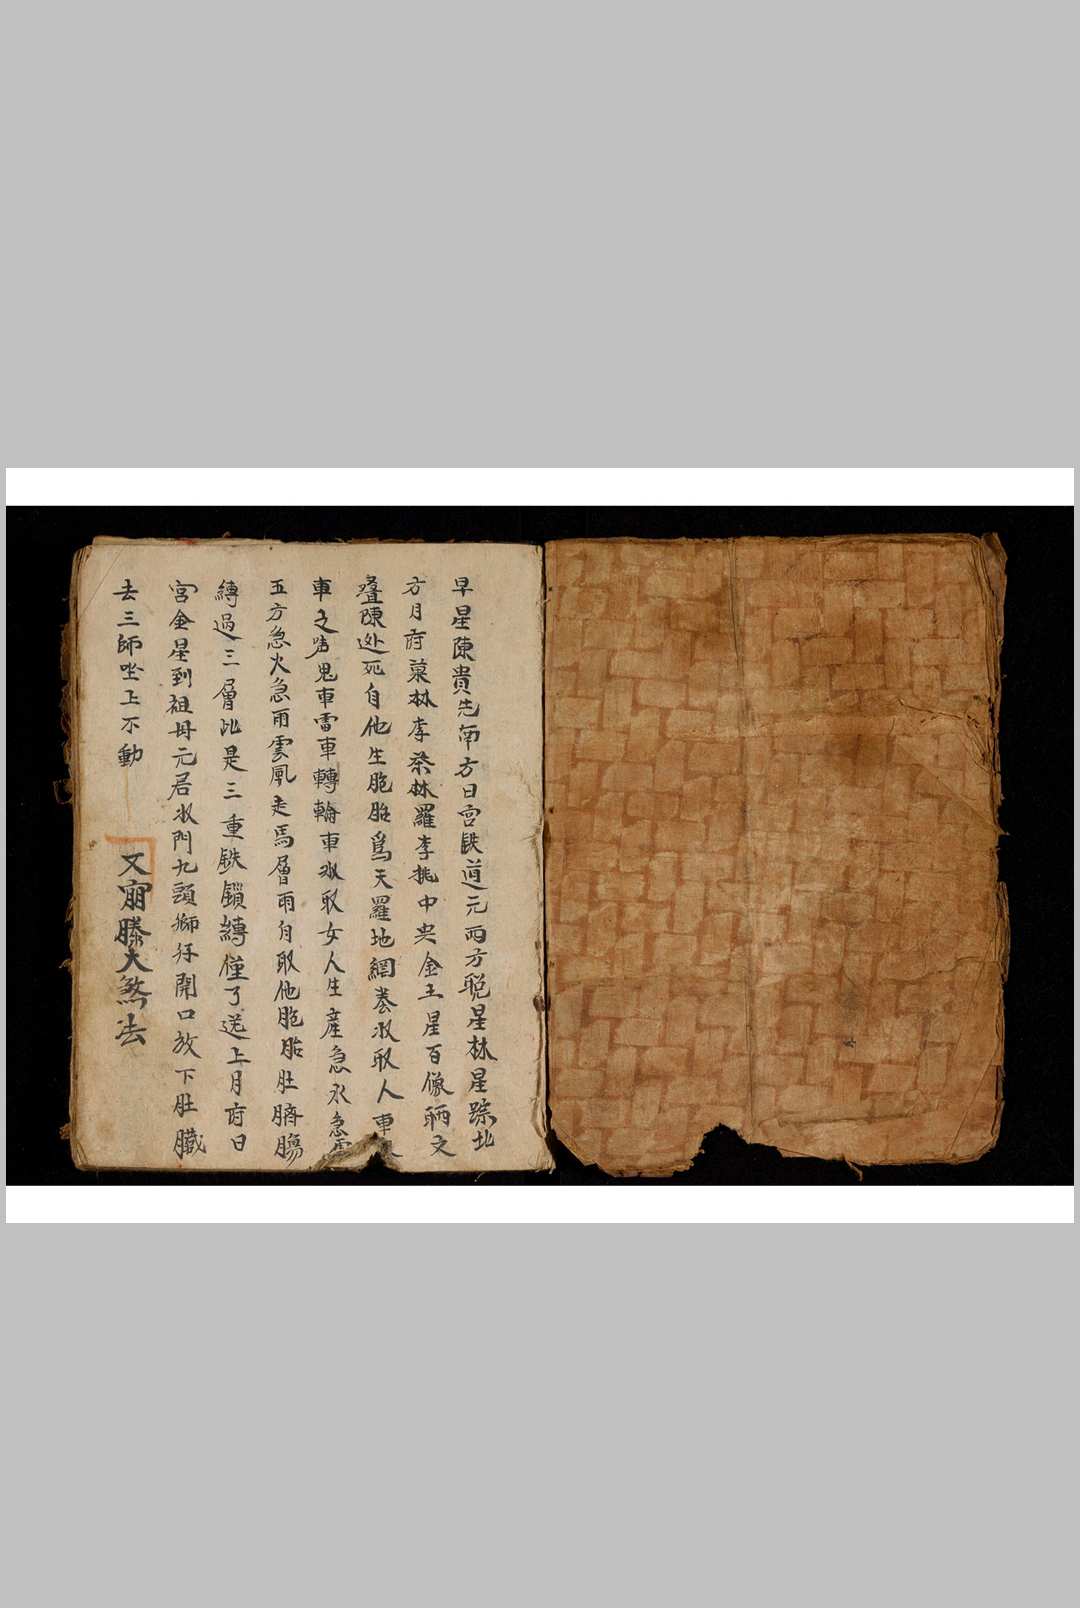 早星陳貴先南方日宮鉄道元西方晚星林星踪北
方月府菓林李柒林羅李桃中央金土星百像文
疊陳処死自他生胞胎為天羅地網養収取人車
車之鬼車雷車轉輪車収取女人生産急水急
五方急火急雨雲風走馬層雨自取他胞胎肚臍腸
縛過三層此是三重鉄鎖縛僅了送上月府日
宮金星到祖母元居水門九頭獅仔開口放下肚臓
去三師坐上不動
又崩滕大煞法